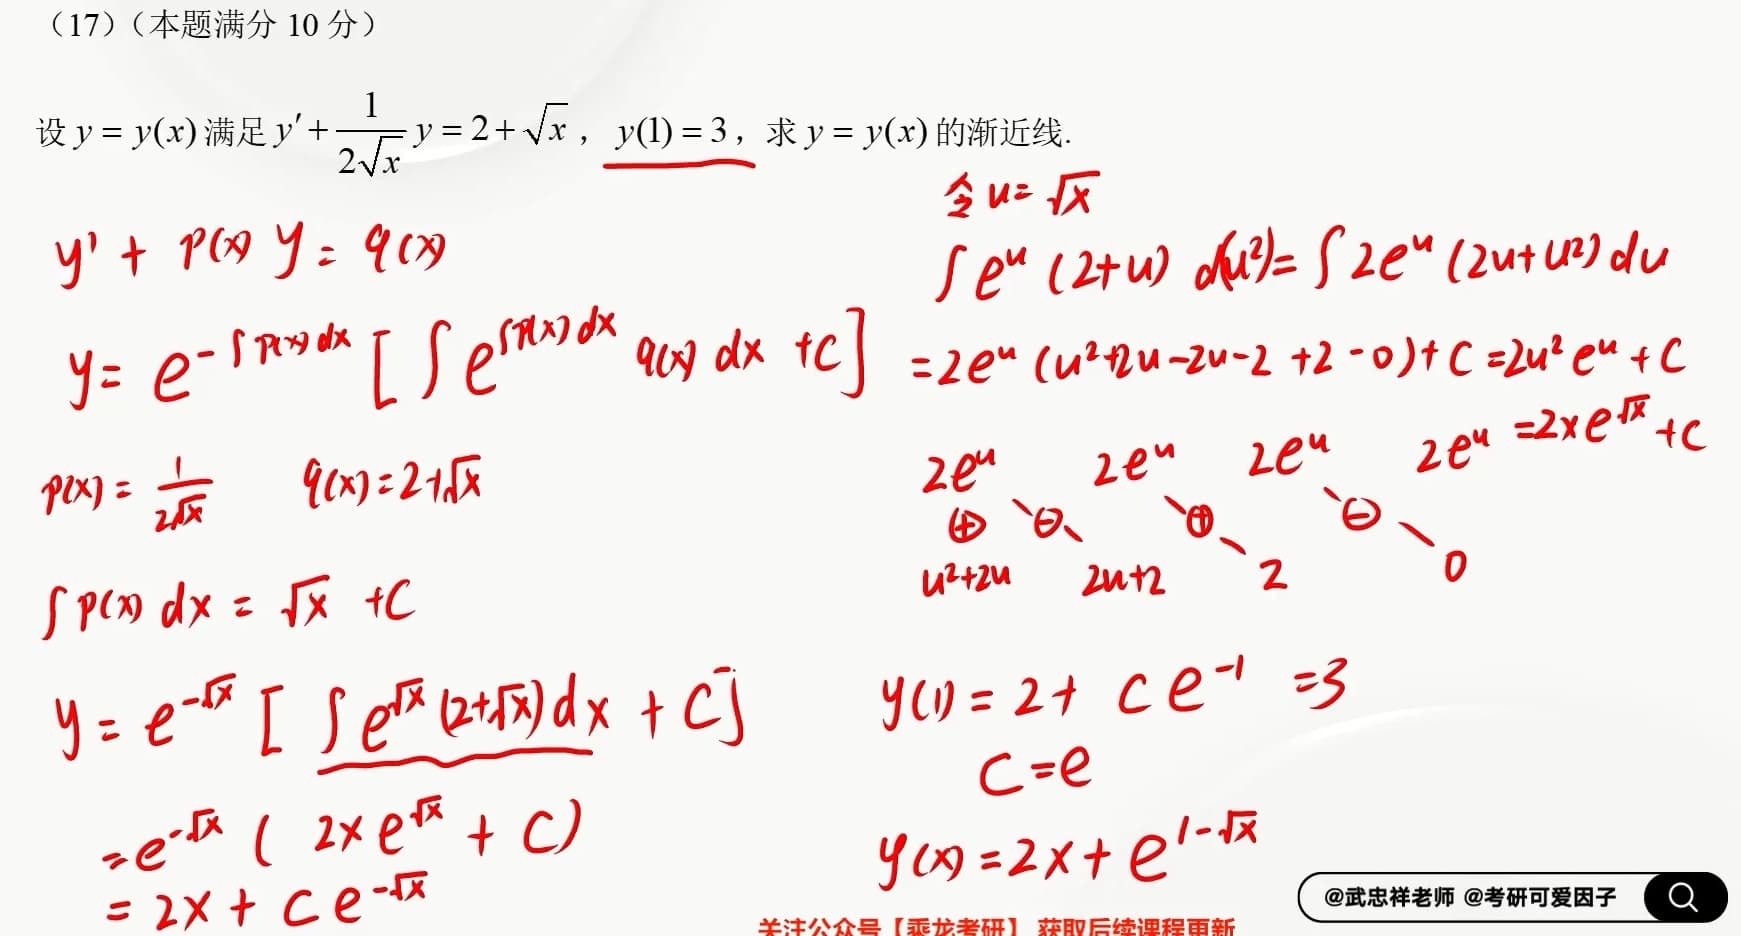 （17）（本题满分 10 分）
设 y = y(x) 满足 y′ + \frac{1}{2√x} y = 2 + √x ， y(1) = 3 ， 求 y = y(x) 的渐近线.
y' + p(x) y = q(x)
y = e^{-∫p(x)dx} [ ∫ e^{∫p(x)dx} q(x) dx + C ]
p(x) = \frac{1}{2√x} q(x) = 2+√x
∫ p(x) dx = √x + C
y = e^{-√x} [ ∫ e^{√x} (2+√x) dx + C ]
= e^{-√x} ( 2x e^{√x} + C )
= 2x + c e^{-√x}
令 u = √x
∫ e^u (2+u) d(u²) = ∫ 2e^u (2u+u²) du
= 2e^u (u²+2u-2u-2+2-0) + C = 2u² e^u + C
= 2x e^{√x} + C
2e^u 2e^u 2e^u 2e^u
⊕ ⊖ ⊕ ⊖
u²+2u 2u+2 2 0
y(1) = 2 + c e^{-1} = 3
C = e
y(x) = 2x + e^{1-√x}
@武忠祥老师 @考研可爱因子
关注公众号【乘龙考研】 获取后续课程更新